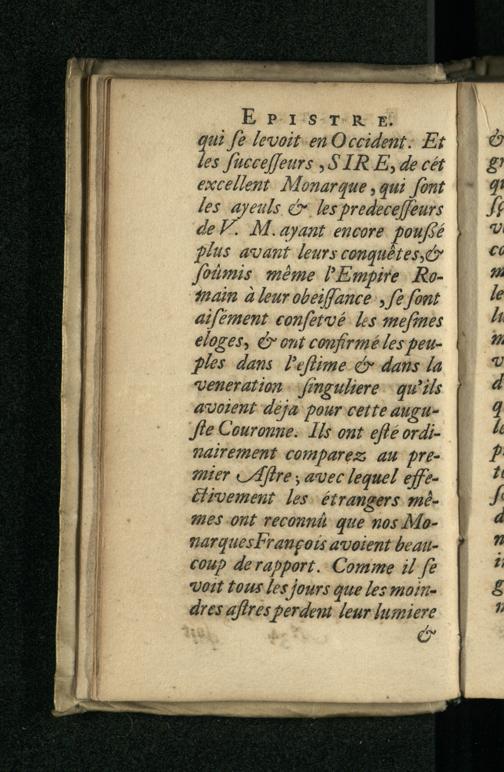 EPISTRE.
qui ſe levoit en Occident. Et
les ſucceſſeurs, SIRE, de cét
excellent Monarque, qui ſont
les ayeuls & les predeceſſeurs
de V. M. ayant encore poußé
plus avant leurs conquêtes, &
ſoûmis même l'Empire Ro-
main à leur obeiſſance, ſe ſont
aiſément conſetvé les meſmes
eloges, & ont confirmé les peu-
ples dans l'eſtime & dans la
veneration ſinguliere qu'ils
avoient déja pour cette augu-
ſte Couronne. Ils ont eſté ordi-
nairement comparez au pre-
mier Aſtre; avec lequel effe-
ctivement les étrangers mê-
mes ont reconnû que nos Mo-
narques François avoient beau-
coup de rapport. Comme il ſe
voit tous les jours que les moin-
dres aſtres perdent leur lumiere
&